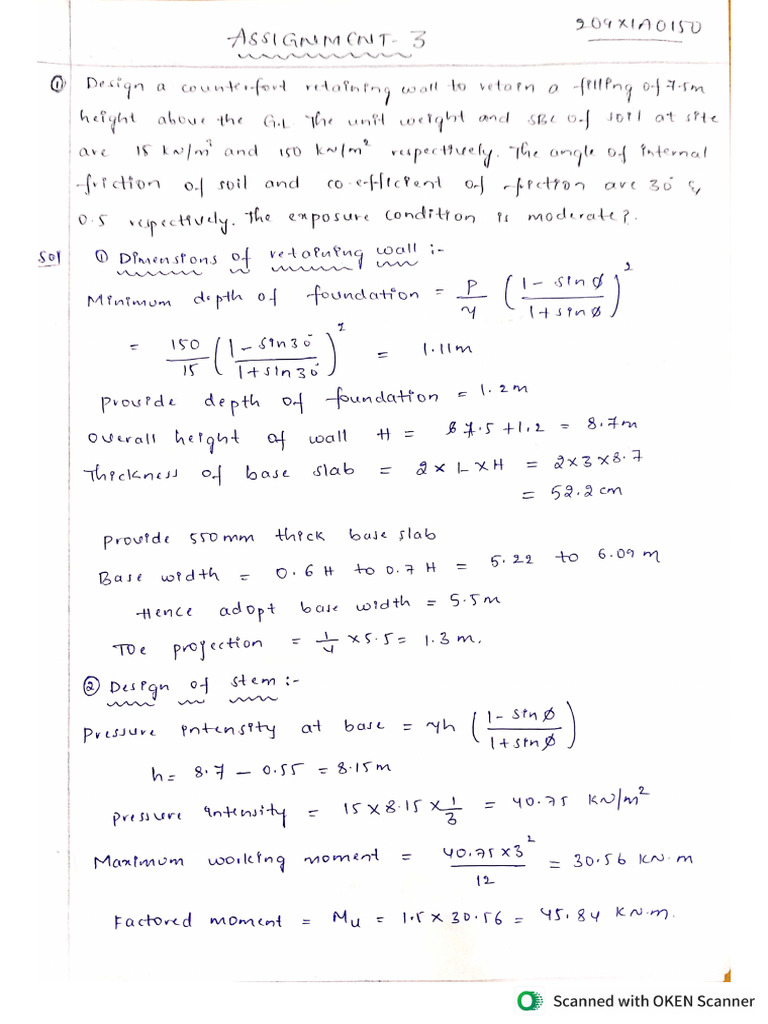 ASSIGNMENT-3
209X1A0150
① Design a counterfort retaining wall to retain a filling of 7.5m
height above the G.L The unit weight and SBC of soil at site
are 15 kN/m³ and 150 kN/m² respectively. The angle of internal
friction of soil and co-efficient of friction are 30° &
0.5 respectively. The exposure condition is moderate?.
Sol ① Dimensions of retaining wall :-
Minimum depth of foundation = P/γ ((1 - sinφ)/(1 + sinφ))²
= 150/15 ((1 - sin30°)/(1 + sin30°))² = 1.11m
provide depth of foundation = 1.2m
Overall height of wall H = 7.5 + 1.2 = 8.7m
Thickness of base slab = 2 × L × H = 2×3×8.7
= 52.2 cm
provide 550mm thick base slab
Base width = 0.6 H to 0.7 H = 5.22 to 6.09 m
Hence adopt base width = 5.5m
Toe projection = 1/4 × 5.5 = 1.3 m.
② Design of stem :-
Pressure intensity at base = γh ((1 - sinφ)/(1 + sinφ))
h = 8.7 - 0.55 = 8.15m
pressure intensity = 15 × 8.15 × 1/3 = 40.75 KN/m²
Maximum working moment = (40.75 × 3²)/12 = 30.56 KN.m
Factored moment = Mu = 1.5 × 30.56 = 45.84 KN.m.
Scanned with OKEN Scanner